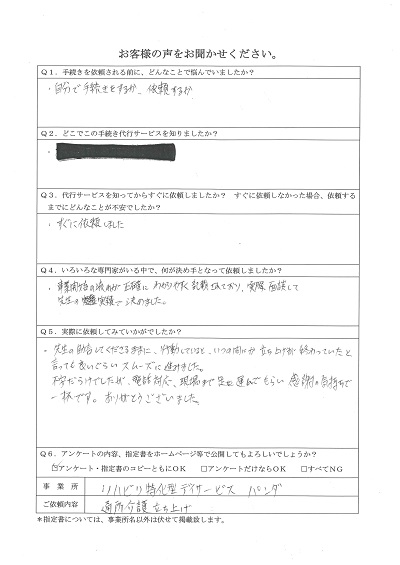 お客様の声をお聞かせください。
Q1．手続きを依頼される前に、どんなことで悩んでいましたか？
・自分で手続きをするか、依頼するか
Q2．どこでこの手続き代行サービスを知りましたか？
・
Q3．代行サービスを知ってからすぐに依頼しましたか？ すぐに依頼しなかった場合、依頼する
までにどんなことが不安でしたか？
・すぐに依頼しました
Q4．いろいろな専門家がいる中で、何が決め手となって依頼しましたか？
・事業開始の流れが正確にわかりやすく記載されており、実際面談して
先生の実績で決めました。
Q5．実際に依頼してみていかがでしたか？
・先生の助言してくださるままに、行動していると、いつの間にか立ち上げが終わっていたと
言っても良いぐらいスムーズに進みました。
不安だらけでしたが、電話対応、現場まで足を運んでもらい感謝の気持ちで
一杯です。ありがとうございました。
Q6．アンケートの内容、指定書をホームページ等で公開してもよろしいでしょうか？
☑アンケート・指定書のコピーともにOK □アンケートだけならOK □すべてNG
事業所 リハビリ特化型デイサービス パンダ
ご依頼内容 通所介護立ち上げ
＊指定書については、事業所名以外は伏せて掲載致します。